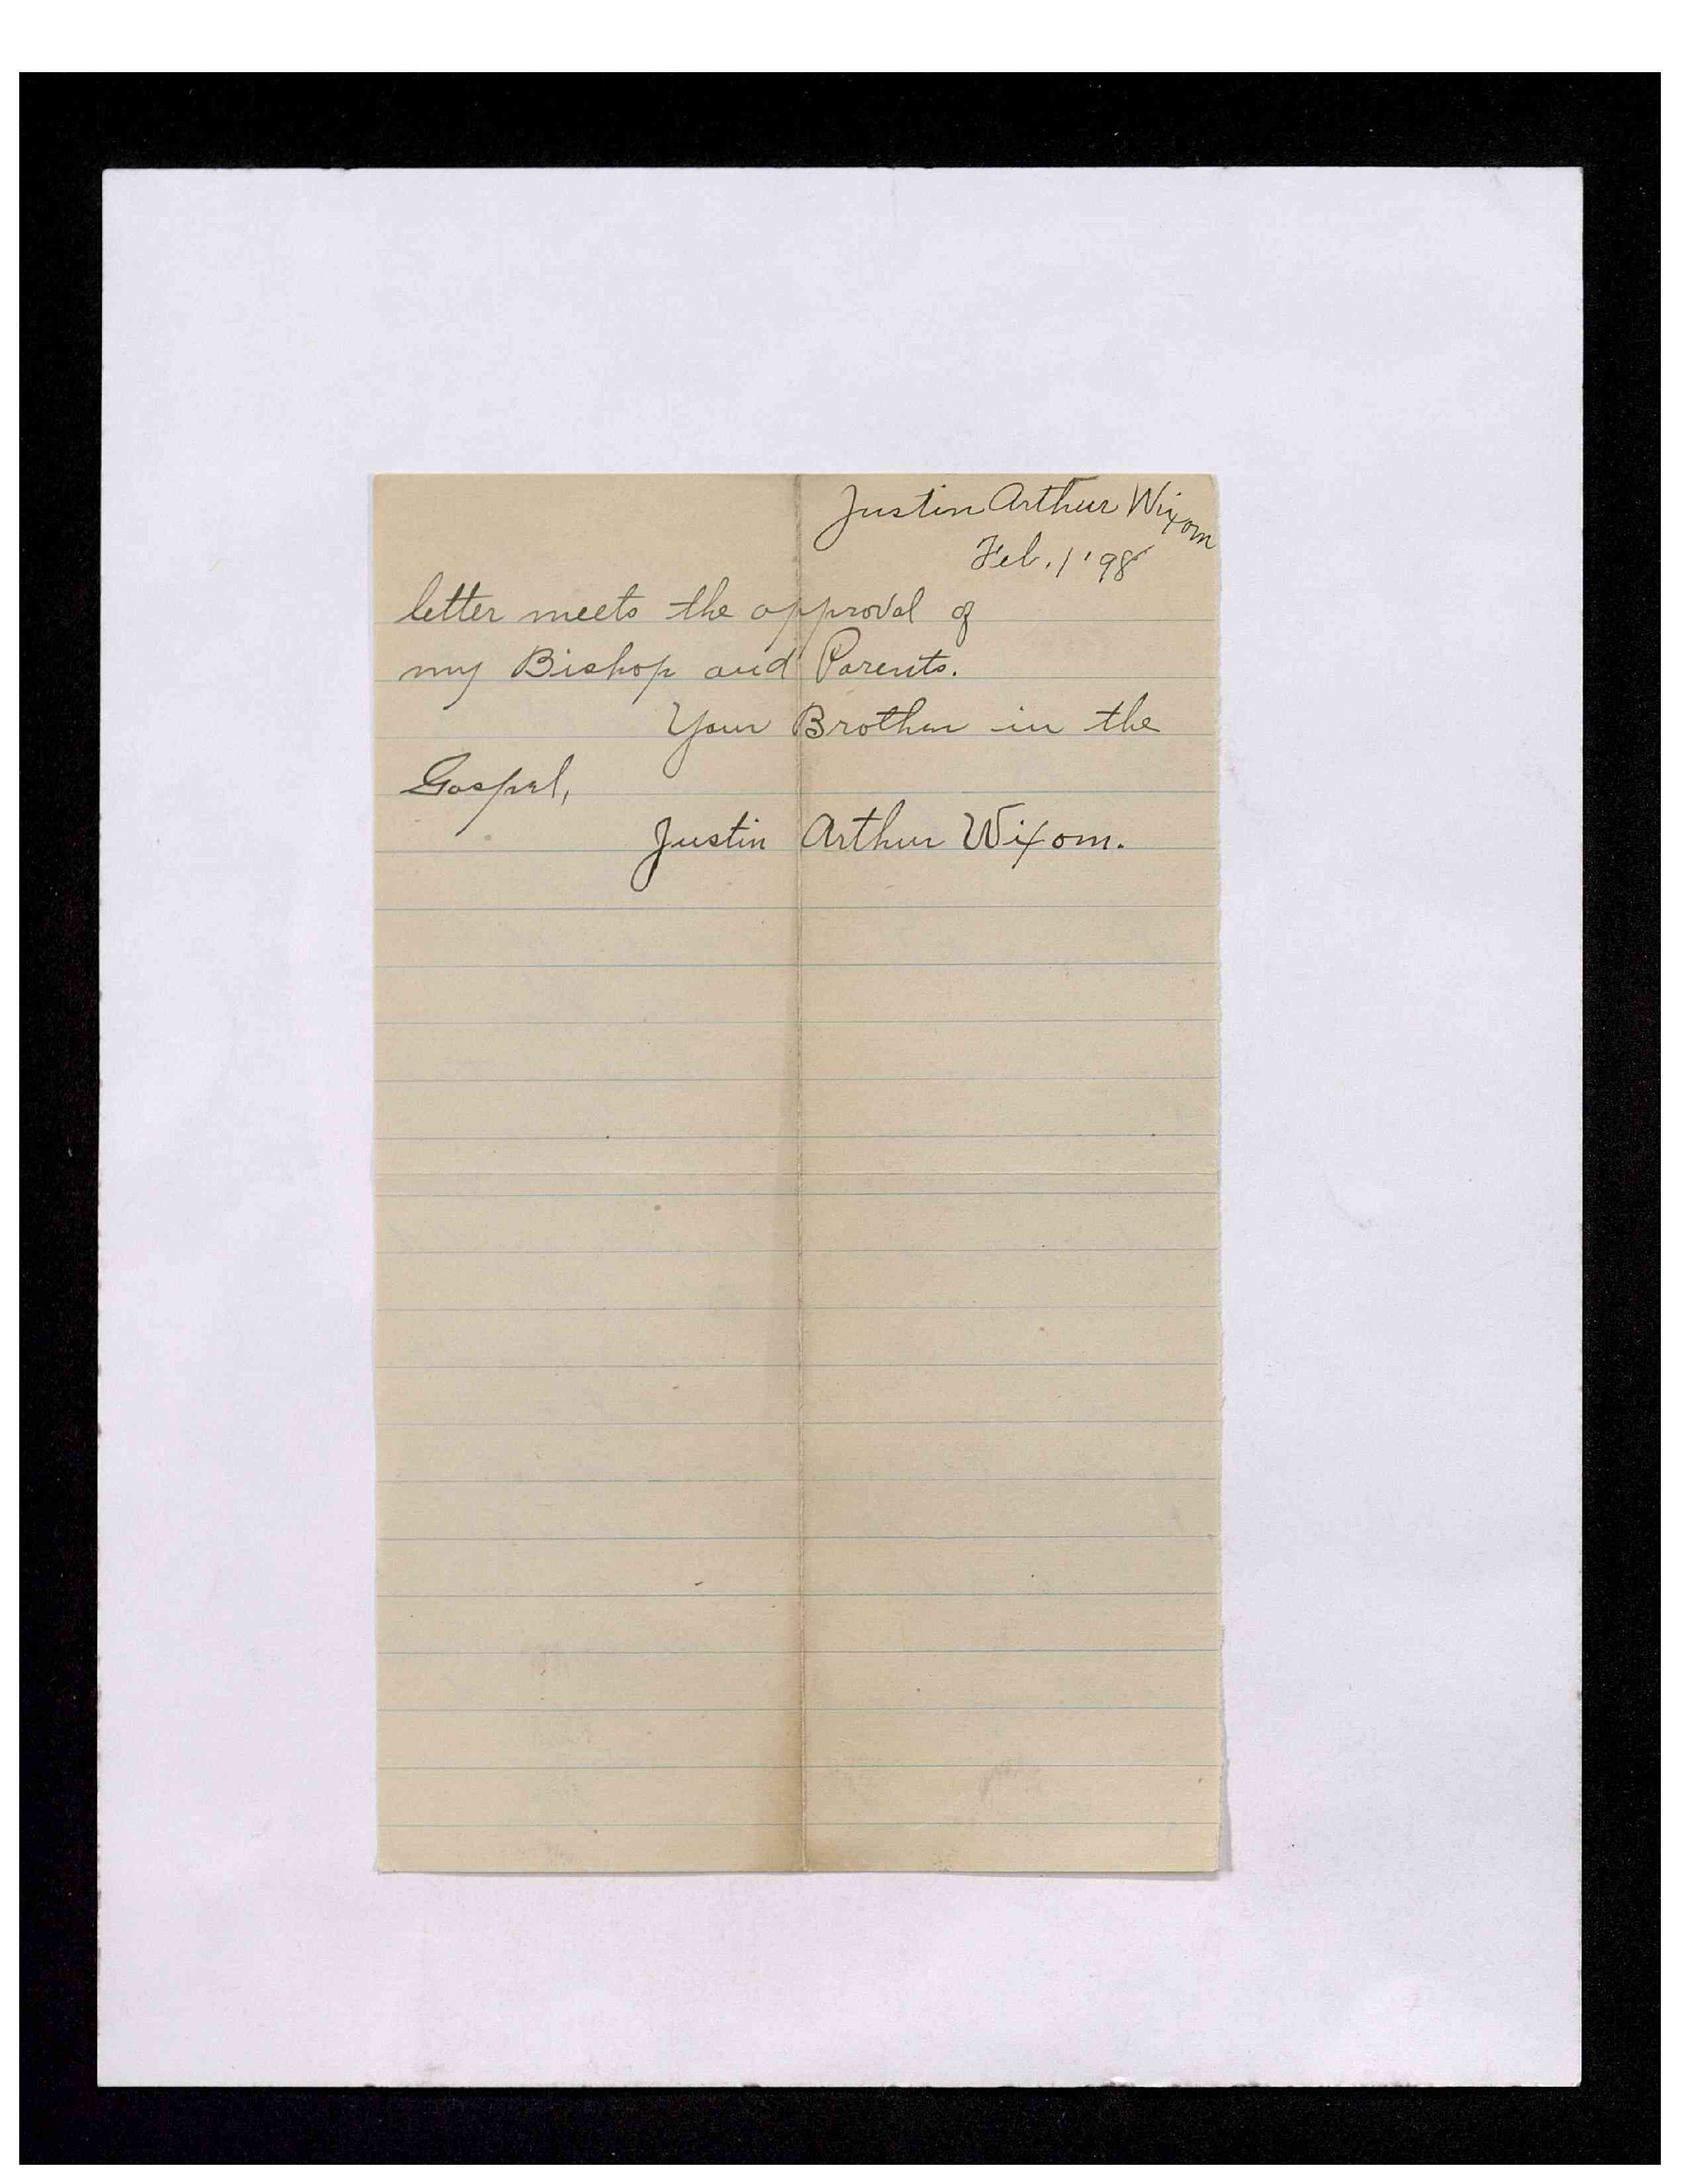 Justin Arthur Wixom
Feb. 1 '98
letter meets the approval of
my Bishop and Parents.
Your Brother in the
Gospel,
Justin Arthur Wixom.